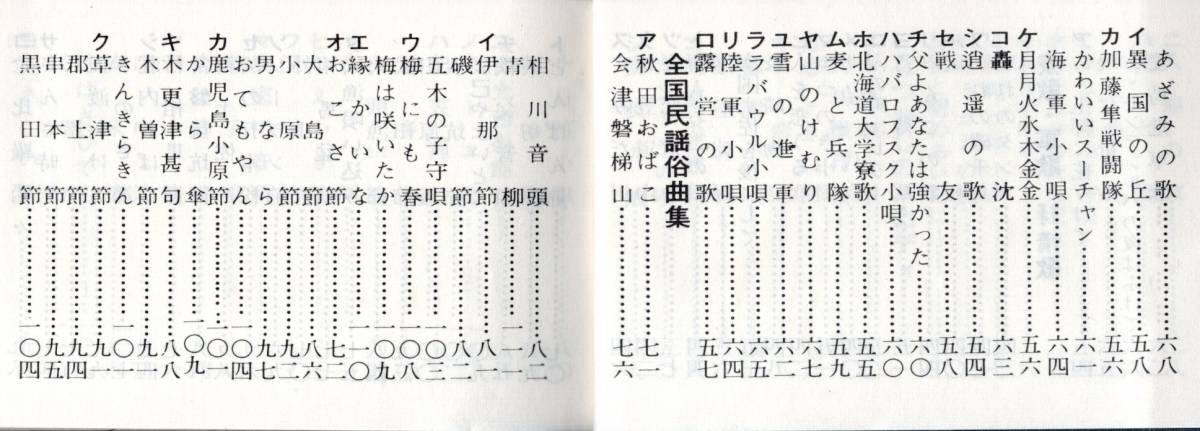 あざみの歌……六八
イ異国の丘……五八
カ加藤隼戦闘隊……五六
かわいいスーチャン……六二
海軍小唄……六四
ケ月月火水木金金……六五
コ轟沈……六三
シ逍遥の歌……五四
セ戦友……五八
チ父よあなたは強かった……六〇
ハハバロフスク小唄……六六
ホ北海道大学寮歌……五五
ム麦と兵隊……五九
ヤ山のけむり……六七
ユ雪の進軍……六二
ララバウル小唄……六五
リ陸軍小唄……六四
ロ露営の歌……五七
全国民謡俗曲集
ア秋田おばこ……七一
会津磐梯山……七六
相川音頭……八二
青柳……一一一
イ伊那節……八一
磯節……八二
五木の子守唄……一〇三
ウ梅にも春……一〇八
梅は咲いたか……一〇九
エ縁かいな……一一〇
オおこさ節……七二
大島節……八六
小原節……九九
男なら……九七
おてもやん……一〇四
カ鹿児島小原節……一〇一
から傘……一〇九
キ木更津甚句……八八
木曽節……九二
きんきらきん……一〇二
ク草津節……九一
郡上節……九四
串本節……九五
黒田節……一〇四